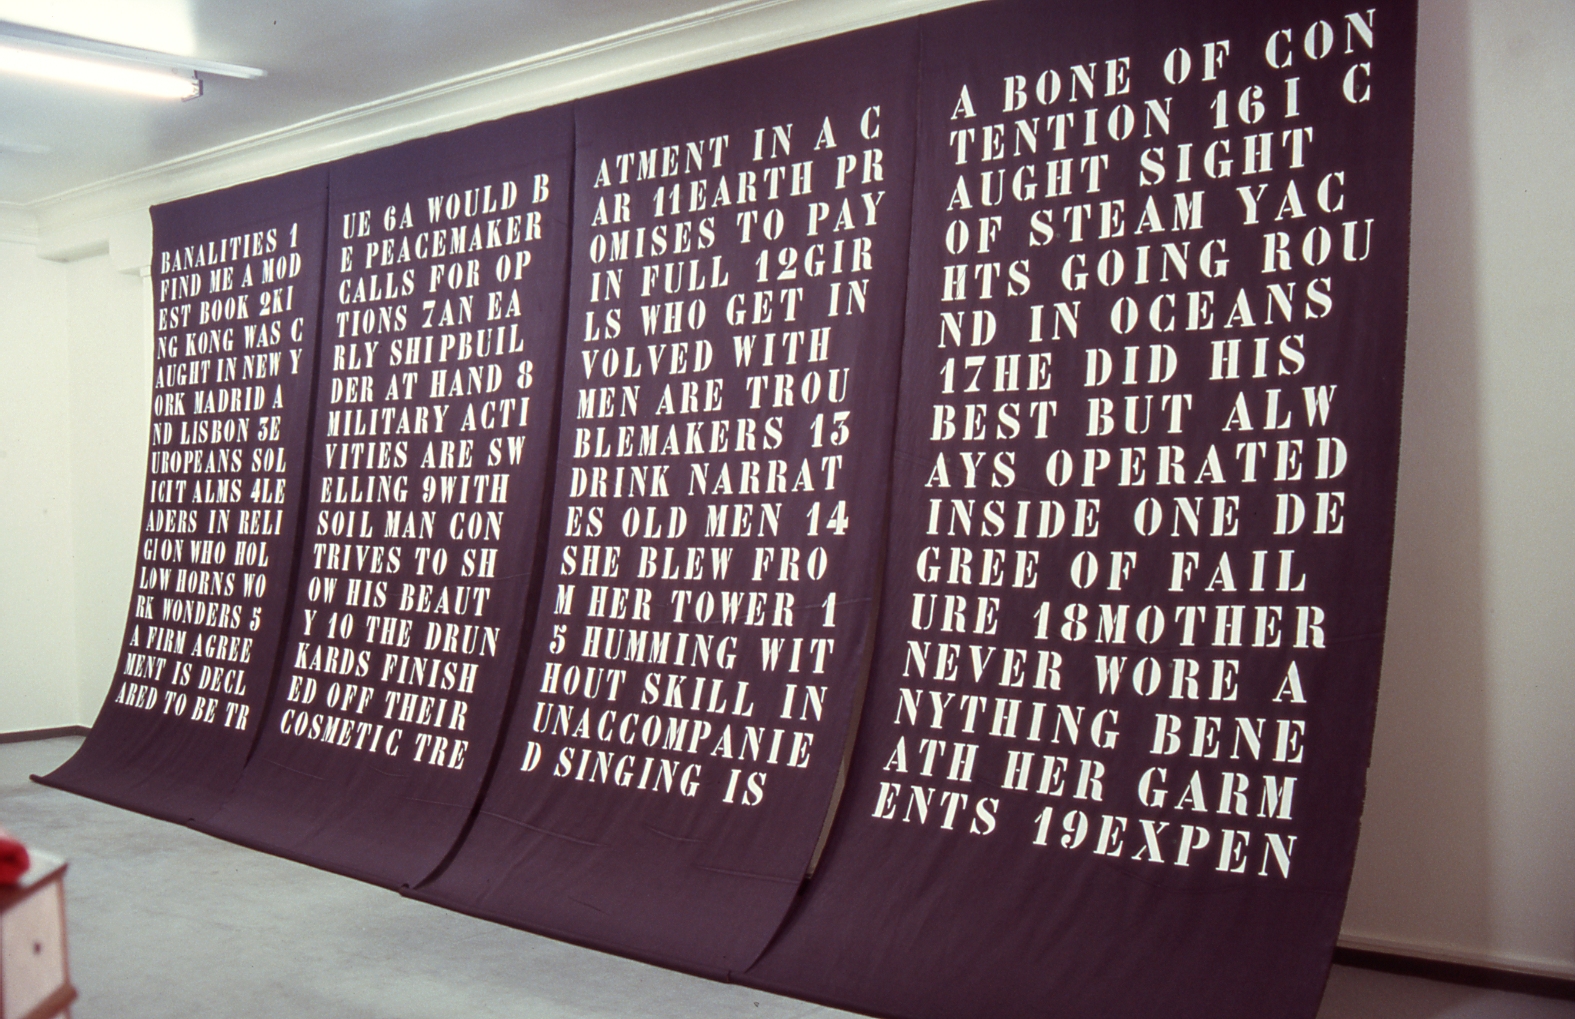 BANALITIES 1
FIND ME A MOD
EST BOOK 2KI
NG KONG WAS C
AUGHT IN NEW Y
ORK MADRID A
ND LISBON 3E
UROPEANS SOL
ICIT ALMS 4LE
ADERS IN RELI
GION WHO HOL
LOW HORNS WO
RK WONDERS 5
A FIRM AGREE
MENT IS DECL
ARED TO BE TR
UE 6A WOULD B
E PEACEMAKER
CALLS FOR OP
TIONS 7AN EA
RLY SHIPBUIL
DER AT HAND 8
MILITARY ACTI
VITIES ARE SW
ELLING 9WITH
SOIL MAN CON
TRIVES TO SH
OW HIS BEAUT
Y 10 THE DRUN
KARDS FINISH
ED OFF THEIR
COSMETIC TRE
ATMENT IN A C
AR 11EARTH PR
OMISES TO PAY
IN FULL 12GIR
LS WHO GET IN
VOLVED WITH
MEN ARE TROU
BLEMAKERS 13
DRINK NARRAT
ES OLD MEN 14
SHE BLEW FRO
M HER TOWER 1
5 HUMMING WIT
HOUT SKILL IN
UNACCOMPANIE
D SINGING IS
A BONE OF CON
TENTION 16I C
AUGHT SIGHT
OF STEAM YAC
HTS GOING ROU
ND IN OCEANS
17HE DID HIS
BEST BUT ALW
AYS OPERATED
INSIDE ONE DE
GREE OF FAIL
URE 18MOTHER
NEVER WORE A
NYTHING BENE
ATH HER GARM
ENTS 19EXPEN